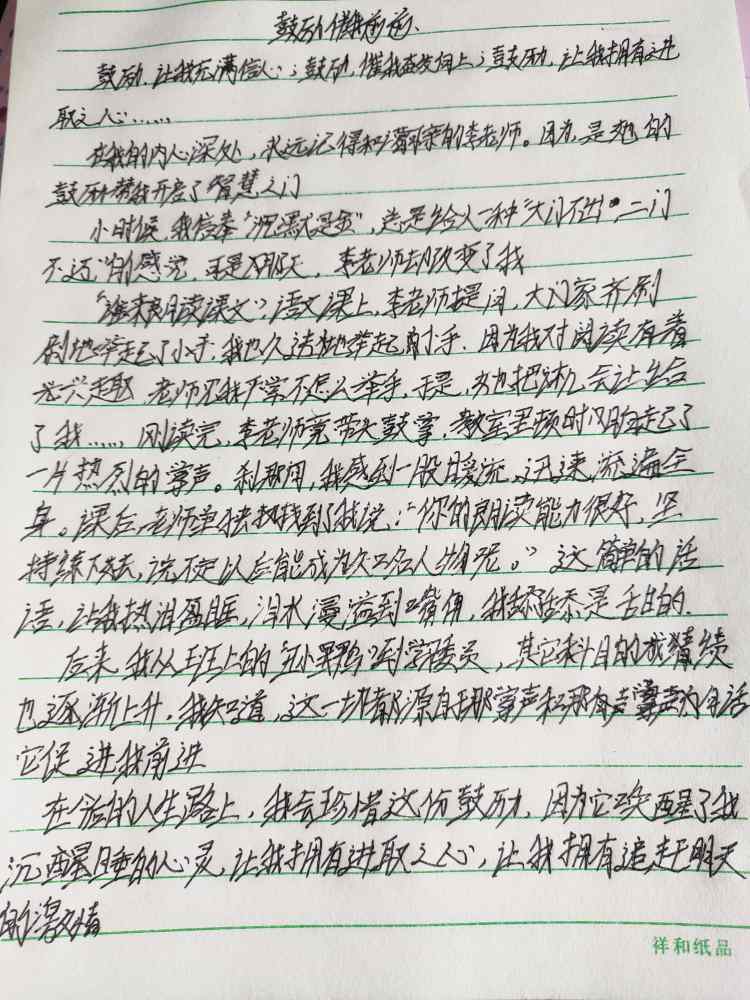 鼓励催我前进.
鼓励,让我充满信心;鼓励,催我奋发向上;鼓励,让我拥有进
取之心……
在我的内心深处,永远记得和蔼可亲的李老师。因为,是她的
鼓励帮我开启了智慧之门
小时候,我信奉“沉默是金”,总是给人一种“大门不出,二门
不迈”的感觉,可是那天,李老师却改变了我
“谁来朗读课文”,语文课上,李老师提问,大家齐刷
刷地举起了小手,我也久违地举起了小手.因为我对阅读有着
兴趣,老师见我平常不怎么举手,于是,她把机会让给
了我……刚读完,李老师竟带头鼓掌,教室里顿时响起了
一片热烈的掌声。刹那间,我感到一股暖流,迅速流遍全
身。课后,老师单独找到了我说:“你的朗读能力很好,坚
持练下去,说不定以后能成为知名人物呢。”这简单的话
语,让我热泪盈眶,泪水漫溢到嘴角,我舔舔是甜的.
后来,我从班上的“丑小鸭”到学习委员,其它科目的成绩
也逐渐上升,我知道,这一切都源自于那掌声和那句话
它促进我前进
在人生路上,我会珍惜这份鼓励,因为它唤醒了我
沉睡的心灵,让我拥有进取之心,让我拥有追赶明天
的激情
祥和纸品